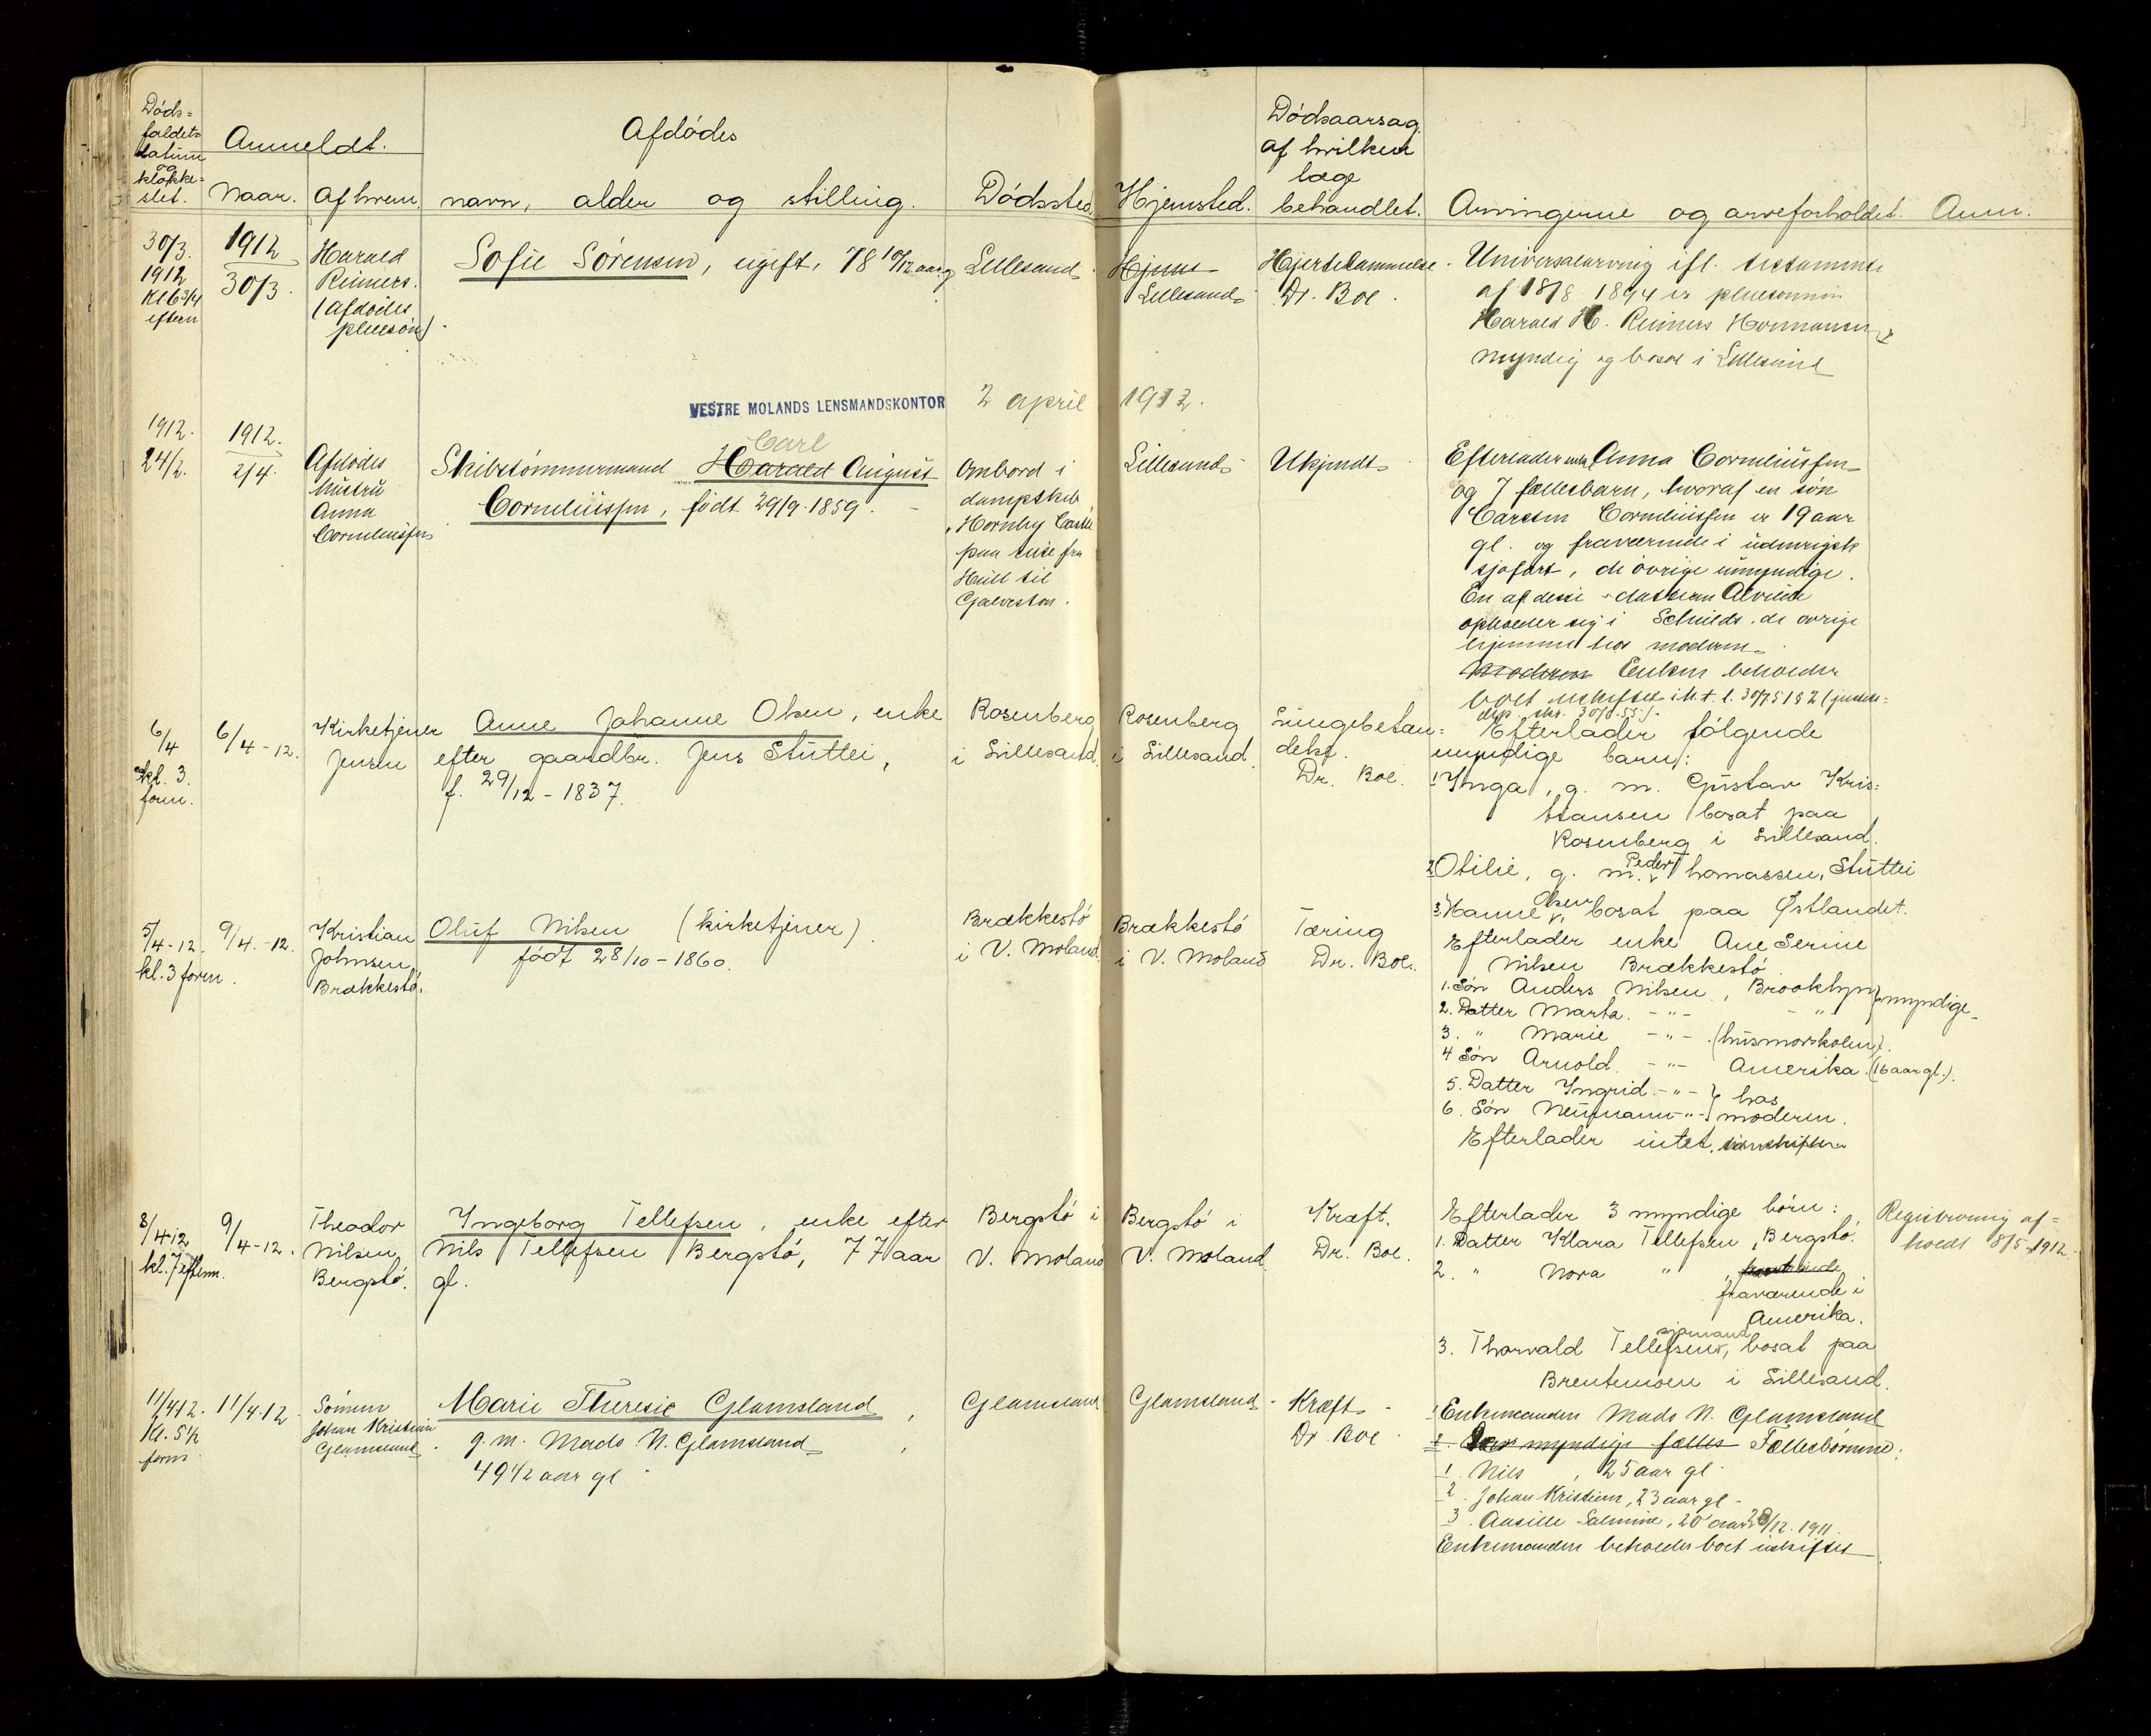 Døds=
faldets
datum
og
klokke=
slet.
Anmeldt.
Naar.
Af hvem.
Afdødes
navn, alder og stilling.
Dødssted.
Hjemsted.
Dødsaarsag.
af hvilken
læge
behandlet.
Arvingerne og arveforholdet.
Anm.
30/3.
1912
Kl 6 3/4
eftern
1912
30/3.
Harald
Reimers.
(afdødes
pleiesøn).
Sofie Sørensen, ugift, 78 10/12 aar g
Lillesand
Hjem
Lillesand
Hjertelammelse.
Dr. Boe.
Universalarving ifl. testamente
af 18/8 1894 er pleiesønnen
Harald H. Reimers Hermansen
myndig og bosat i Lillesand
VESTRE MOLANDS LENSMANDSKONTOR 2 april 1912.
1912.
24/2.
1912.
2/4.
Afdødes
hustru
Anna
Corneliussen
Carl
Skibstømmermand Harald August
Corneliussen, født 29/9. 1859.
Ombord i
dampskib
"Hornby Castle
paa reise fra
Hull til
Galveston.
Lillesand
Ukjendt
Efterlader enke Anna Corneliussen
og 7 fællesbarn, hvoraf en søn
Carsten Corneliussen er 19 aar
gl. og fraværende i udenrigsk
sjøfart, de øvrige umyndige.
En af disse datteren
opholder sig i de øvrige
hjemme hos moderen
Moderen Enken beholder
boet uskiftet
6/4
kl. 3.
form.
6/4-12.
Kirketjener
Jensen
Anne Johanne Olsen, enke
efter gaardbr. Jens Stuttei,
f. 29/12-1837.
Rosenberg
i Lillesand.
Rosenberg
i Lillesand.
Lungebetæn=
delse.
Dr. Boe.
Efterlader følgende
myndige barn:
1 Inga, g. m. Gustav Kris=
tiansen bosat paa
Rosenberg i Lillesand.
Peder
2 Otilie, g. m. Thomassen, Stuttei
Olsen
3. Hanne bosat paa Østlandet.
5/4-12.
kl. 3 form.
9/4.-12.
Kristian
Johnsen,
Brækkestø.
Oluf Nilsen (kirketjener).
født 28/10-1860.
Brækkestø
i V. Moland.
Brækkestø
i V. Moland
Tæring
Dr. Boe.
Efterlader enke Ane Serine
Nilsen Brækkestø.
1. Søn Anders Nilsen, Brooklyn } myndige
2. Datter Marta. -"- -"
3. " Marie -"- (husmorskolen).
4 Søn Arnold. -"- Amerika. (16 aar gl.).
5. Datter Ingrid. -"- } hos
6. Søn Neumann -"- moderen.
Efterlader intet.
8/4-12
kl. 7 eftem.
9/4-12.
Theodor
Nilsen
Bergstø.
Ingeborg Tellefsen, enke efter
Nils Tellefsen Bergstø, 77 aar
gl.
Bergstø i
V. Moland
Bergstø i
V. Moland.
Kræft.
Dr. Boe.
Efterlader 3 myndige børn:
1. Datter Klara Tellefsen, Bergstø.
2. " Nora "
fraværende i
Amerika.
sjømand
3. Thorvald Tellefsen, bosat paa
Brentemoen i Lillesand.
Registrering af=
holdt 8/5-1912.
11/4 12.
Kl. 5 1/2
form
11/4.12.
Sønnen
Johan Kristian
Glamsland.
Marie Theresie Glamsland,
g. m. Mads N. Glamsland,
49 1/2 aar gl.
Glamsland
Glamsland.
Kræft
Dr. Boe
1 Enkemanden Mads N. Glamsland
2. myndige fælles Fællesbørnene:
1. Nils, 25 aar gl.
2. Johan Kristian, 23 aar gl.
3. Salmine, 20 aar 28/12. 1911.
Enkemanden beholder boet uskiftet